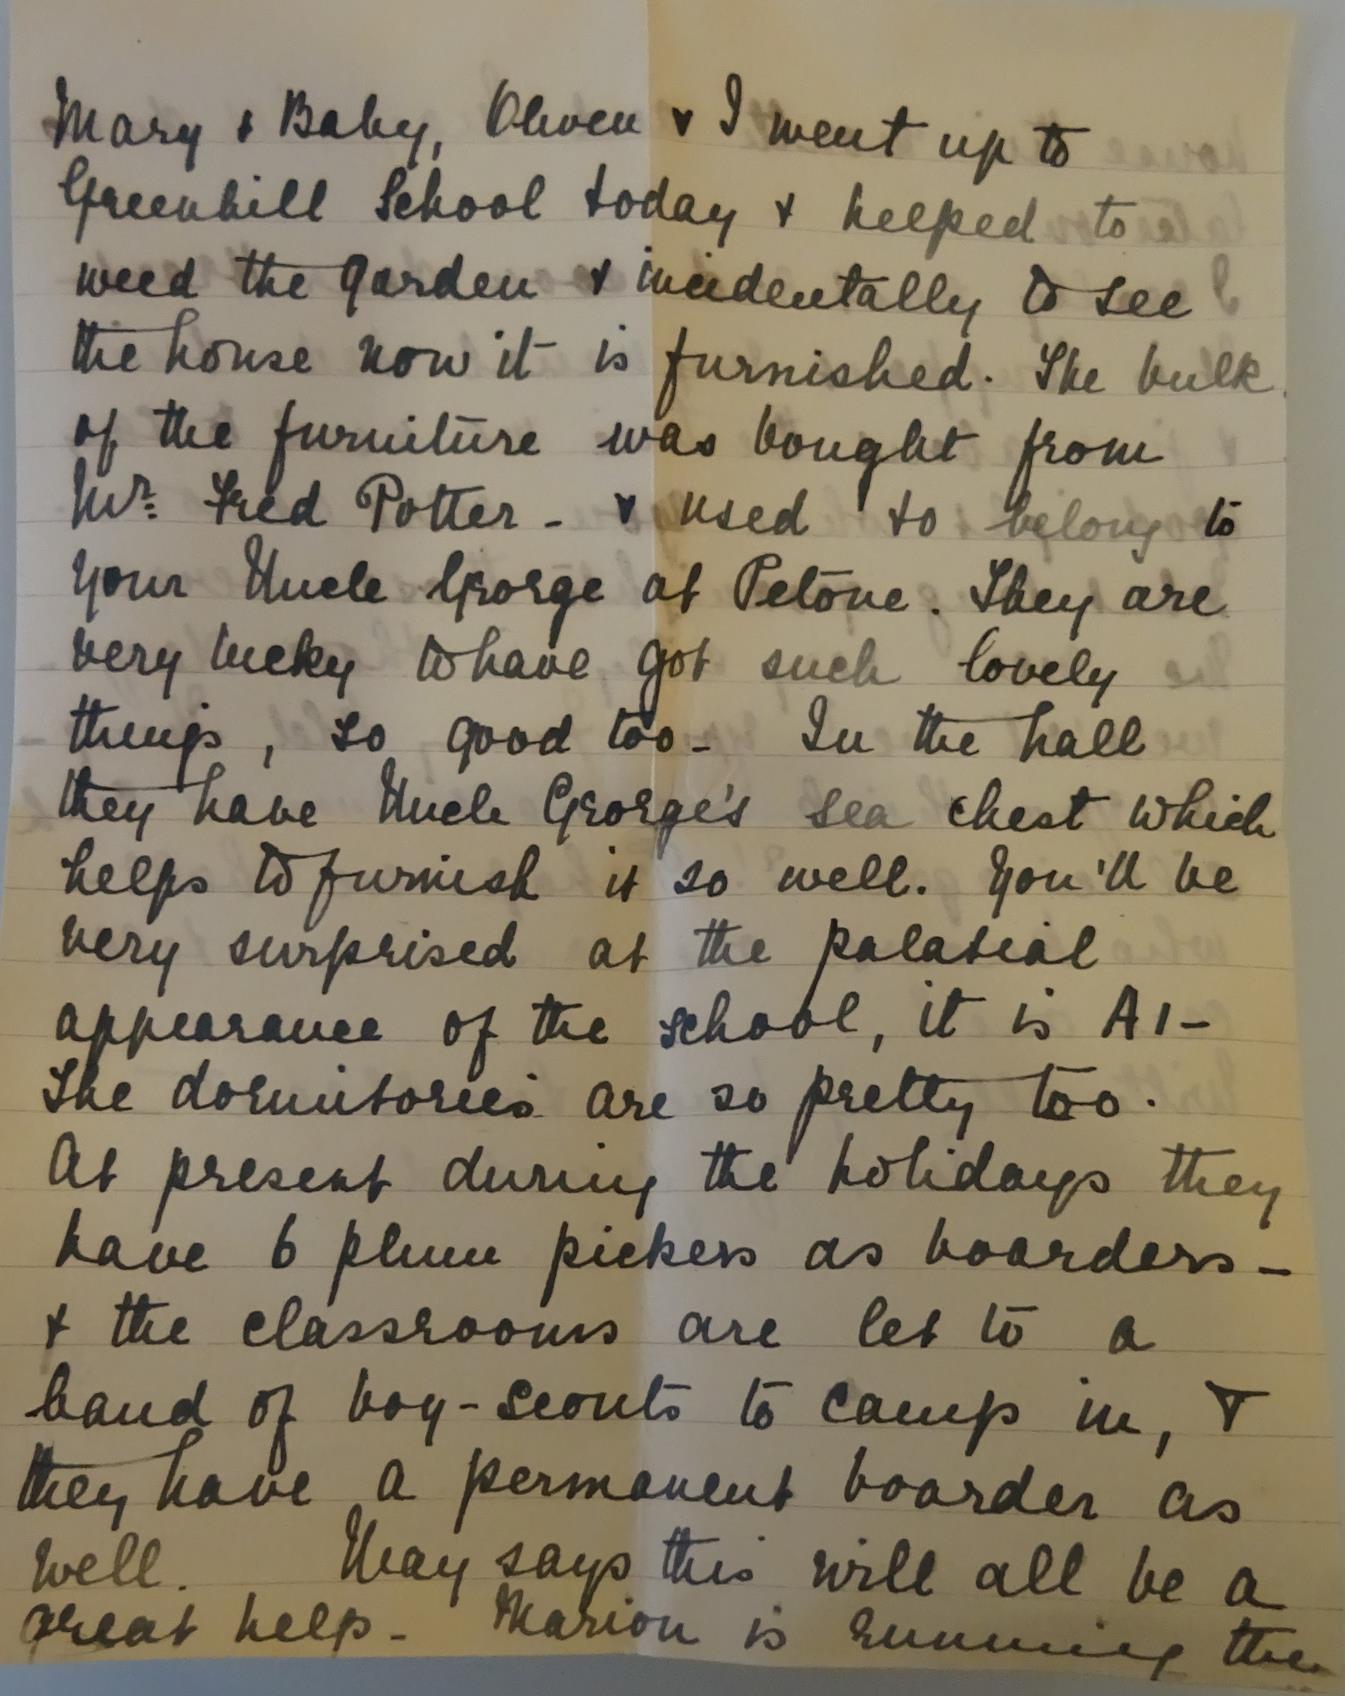 Mary & Baby, Olwen & I went up to
Greenhill School today & helped to
weed the garden & incidentally to see
the house now it is furnished. The bulk
of the furniture was bought from
Mr. Fred Potter - & used to belong to
your Uncle George at Petone. They are
very lucky to have got such lovely
things, so good too - In the hall
they have Uncle George's sea chest which
helps to furnish it so well. You'll be
very surprised at the palatial
appearance of the school, it is A1 -
The dormitories are so pretty too.
At present during the holidays they
have 6 plum pickers as boarders -
& the classrooms are let to a
band of boy-scouts to camp in, &
they have a permanent boarder as
well. May says this will all be a
great help - Marion is running the